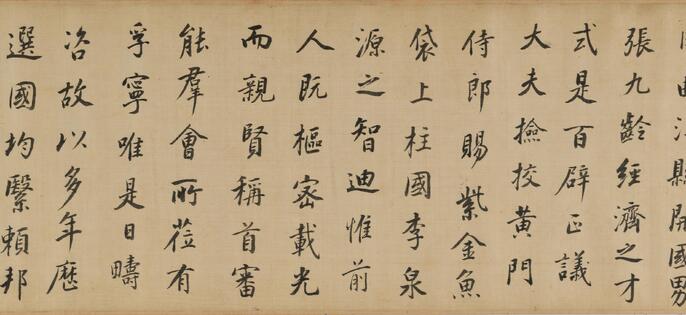 曲江縣開國男
張九齡經濟之才
式是百辟正議
大夫撿挍黃門
侍郎賜紫金魚
袋上柱國李泉
源之智迪惟前
人既樞密載光
而親賢稱首審
能羣會所蒞有
孚寧唯是日疇
咨故以多年歷
選國均繫賴邦